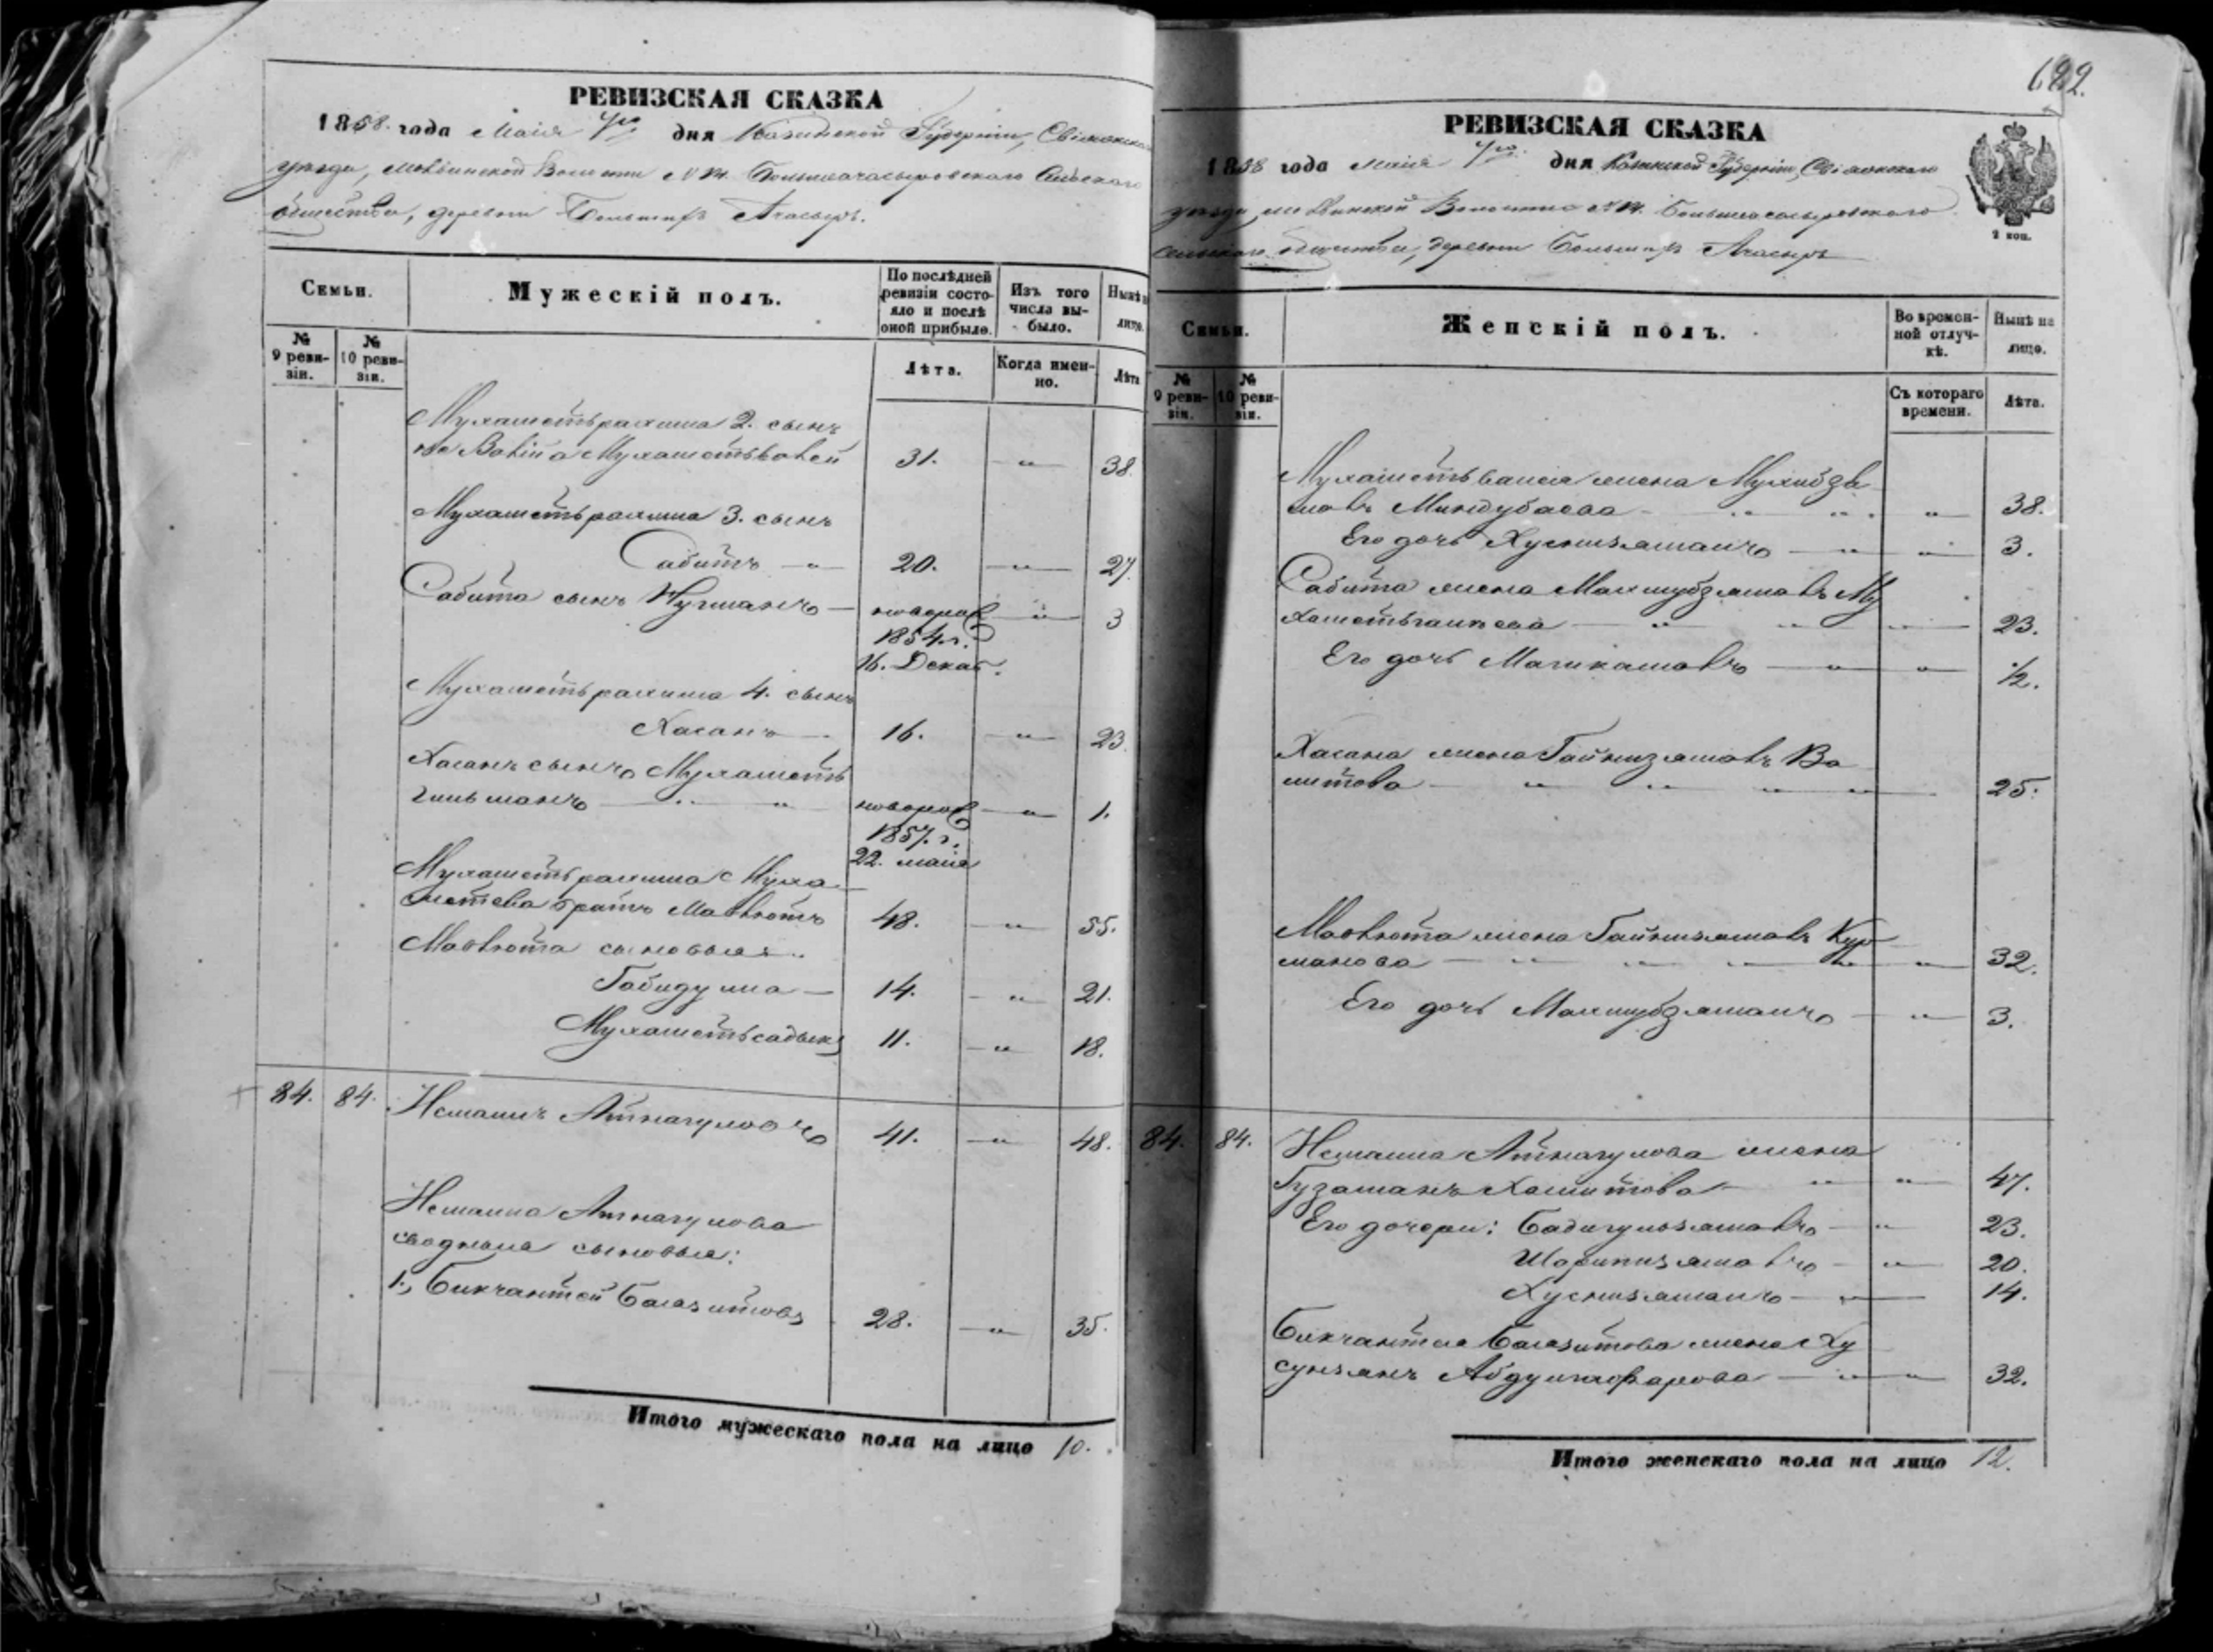 РЕВИЗСКАЯ СКАЗКА
1858. года Маія 7го дня Казанской Губерніи, Свіяжскаго
уезда, Волости № 14. Большеачасыровскаго Сельскаго
общества, деревни Большихъ Ачасыръ.
Семьи.
Мужескій полъ.
По послѣдней ревизіи состояло и послѣ оной прибыло.
Изъ того числа выбыло.
Нынѣ на лицо.
№ 9 ревизіи.
№ 10 ревизіи.
Лѣта.
Когда именно.
Лѣта
Мухаметьрахима 2. сынъ
Мухаметьвалей 31. „ 38.
Мухаметьрахима 3. сынъ
Сабитъ — „ 20. — „ — 27.
Сабита сынъ Нугманъ — новорож — „ — 3
1854. г.
16. Декаб.
Мухаметьрахима 4. сынъ
Хасанъ — 16. — „ — 23.
Хасанъ сынъ Мухаметь
гильманъ — „ „ — новорож — „ — 1.
1857. г.
22. маія
Мухаметьрахима Муха
метева братъ Мавлютъ 48. — „ — 55.
Мавлюта сыновья:
Габидулла — 14. — „ — 21.
Мухаметьсадыкъ 11. — „ — 18.
84. 84. Немашъ Атнагуловъ 41. — „ — 48.
Немаша Атнагулова
сводныя сыновья:
1., Бикчантей Баязитовъ 28. — „ — 35.
Итого мужескаго пола на лицо 10.
622.
РЕВИЗСКАЯ СКАЗКА
1858 года маія 7го. дня Казанской Губерніи, Свіяжскаго
уезда, Волости № 14. Большеачасыровскаго
Сельскаго общества, деревни Большихъ Ачасыръ
2 коп.
Семьи.
Женскій полъ.
Во временной отлучкѣ.
Нынѣ на лицо.
№ 9 ревизіи.
№ 10 ревизіи.
Съ котораго времени.
Лѣта.
Мухаметьвалея жена Мухибзя
малъ Миндубаева — „ „ „ — 38.
Его дочь Хуснизяманъ — „ „ — 3.
Сабита жена Махмубзямалъ Му
хаметьгалеева — „ „ „ — 23.
Его дочь Магикамалъ — „ „ — ½.
Хасана жена Гайнизямалъ Ва
литова — „ „ „ „ — 25.
Мавлюта жена Гайнизямалъ Кур
манова — „ „ „ „ „ — 32.
Его дочь Махмубзяманъ — „ — 3.
84. 84. Немаша Атнагулова жена
Гузаманъ Хамитова — „ „ — 47.
Его дочери: Бадигульзямалъ — „ 23.
Шарипизямалъ — „ — 20.
Хуснизяманъ — „ — 14.
Бикчантея Баязитова жена Ху
сунзянъ Абдулгафарова — „ „ — 32.
Итого женскаго пола на лицо 12.